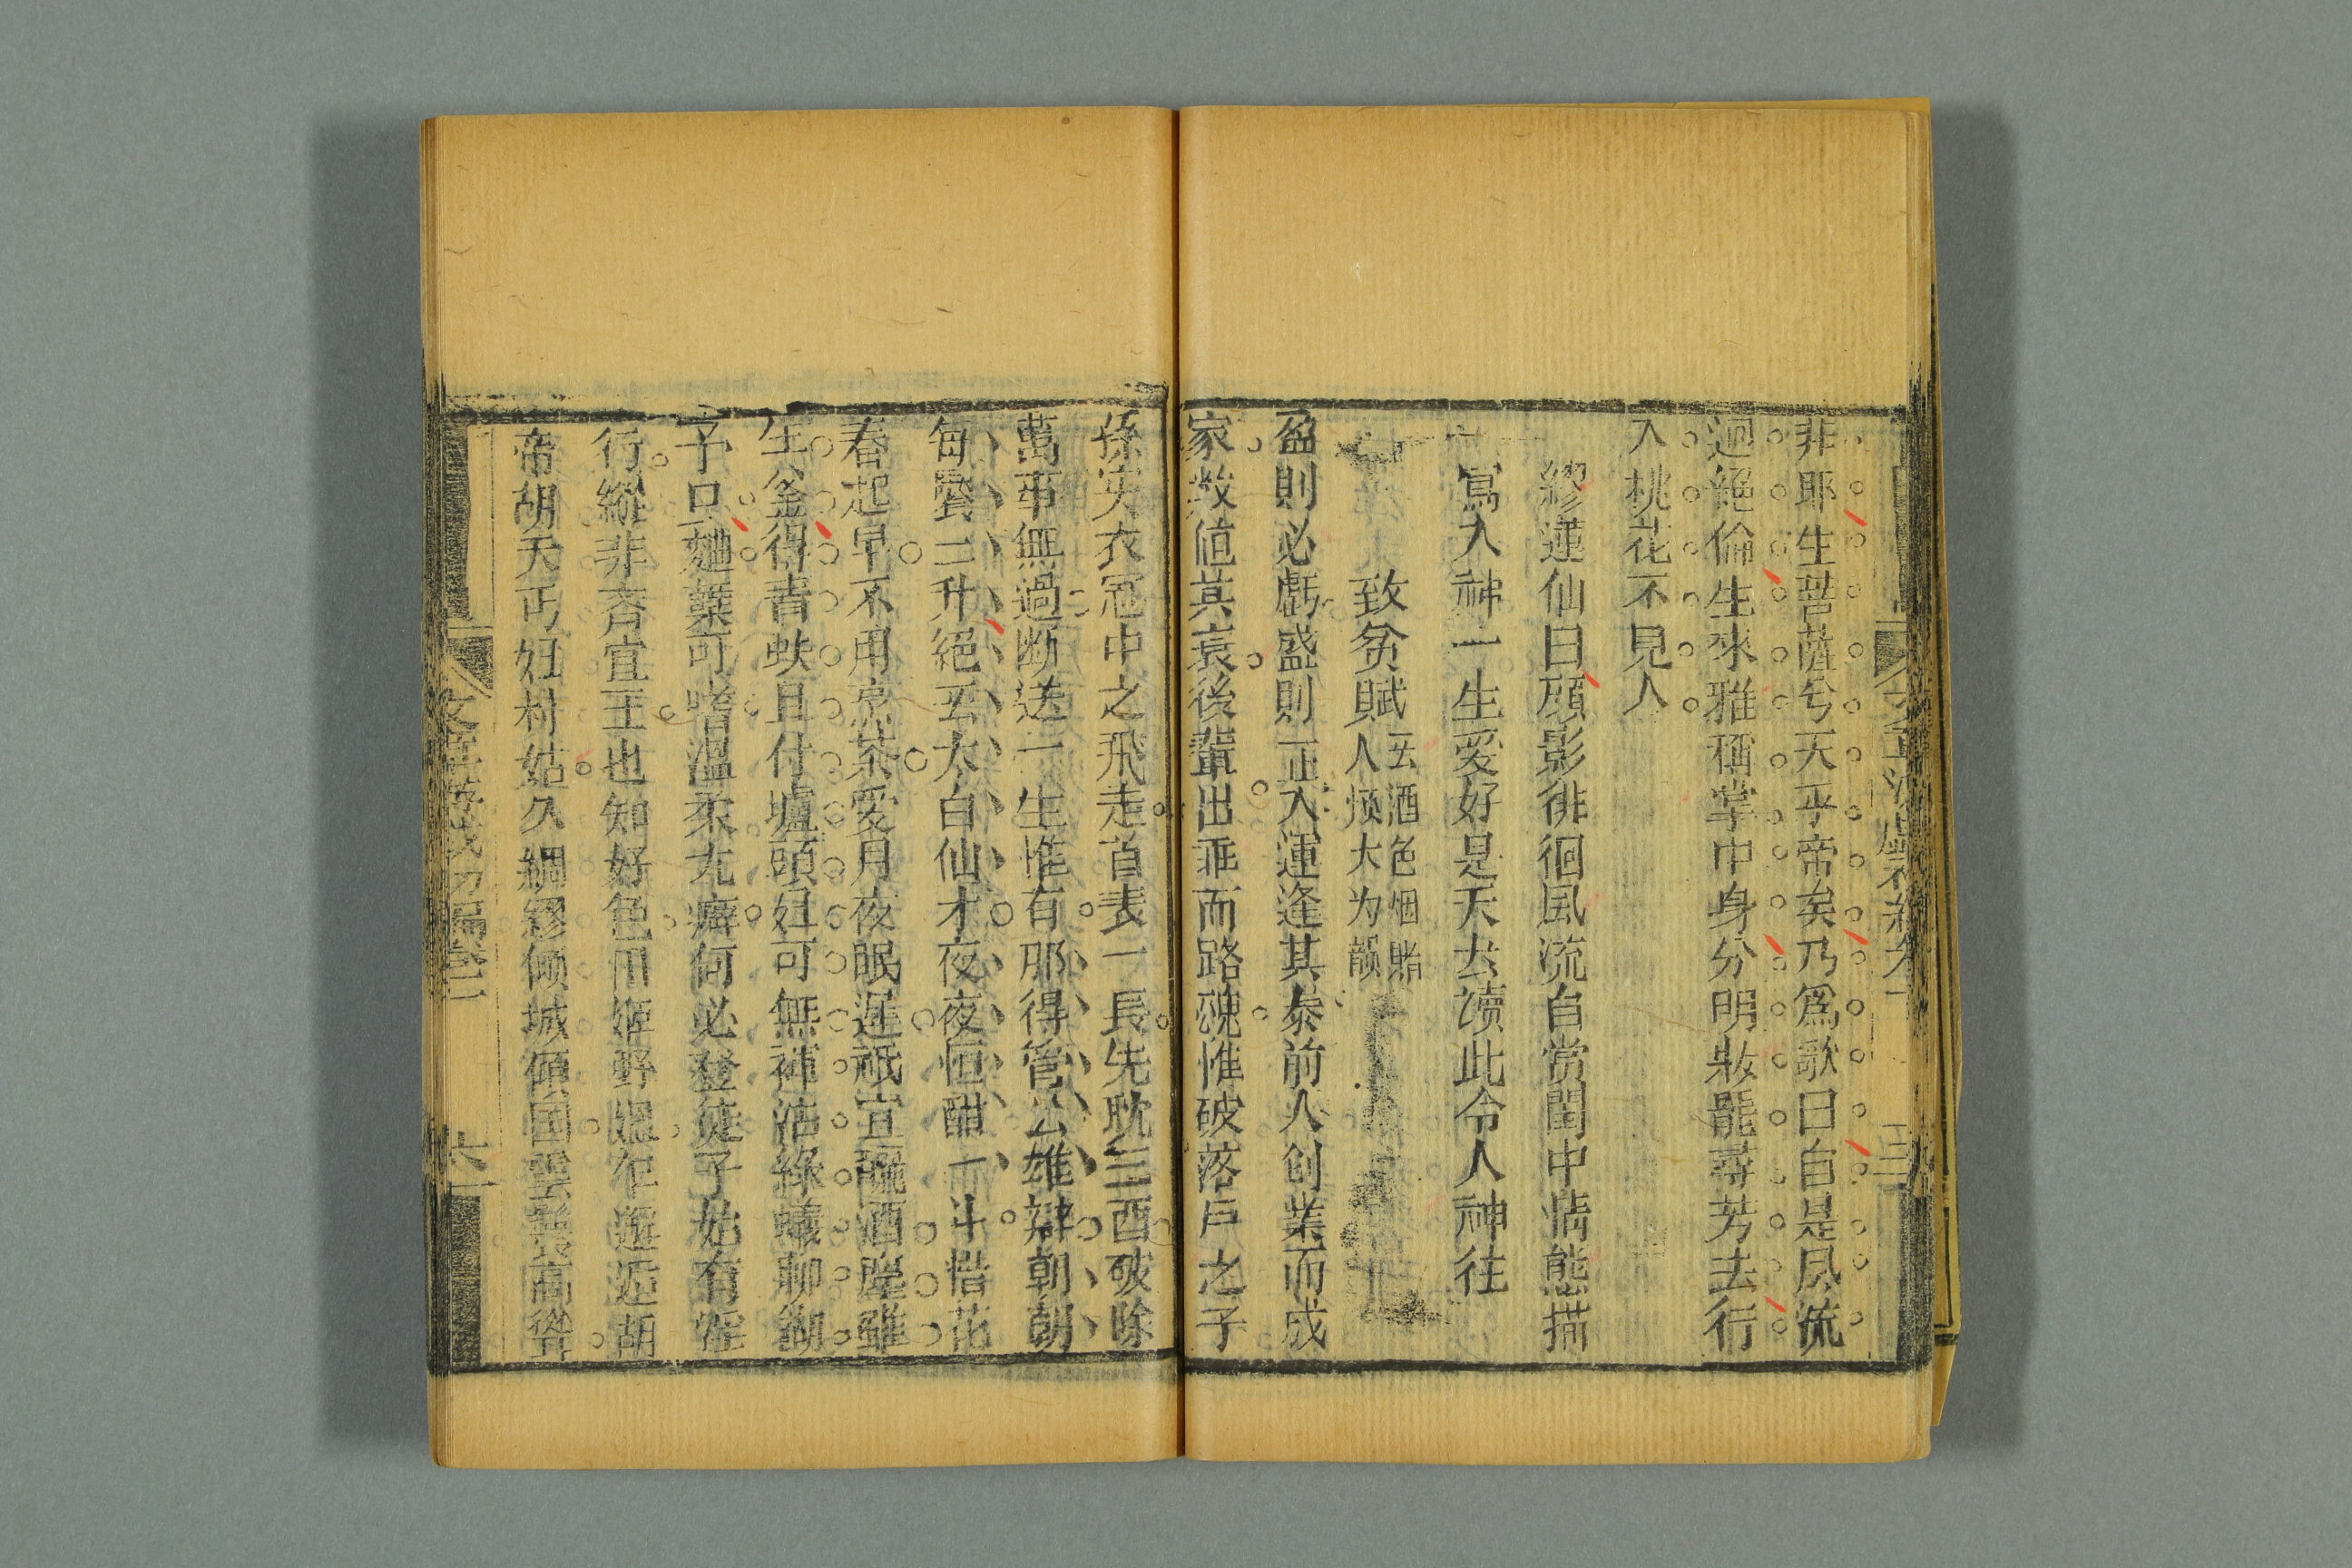 非耶生菩薩兮天乎帝矣乃爲歌曰自是風流
迥絕倫生來雅稱掌中身分明妝罷尋芳去行
入桃花不見人
繆蓮仙曰顧影徘徊風流自赏閨中情態描
寫入神一生爱好是天去读此令人神往
致贫賦
云酒色烟賭
人烦大为韻
盈則必虧盛則正入運逢其泰前人创業而成
家数值其衰後輩出乖而路魂惟破落户之子
孫失衣冠中之飛走首表一長先耽三酉破除
萬事無過断送一生惟有那得管公雄辯朝朝
每罄三升絕丟太白仙才夜夜恒酣一斗惜花
春起早不用烹茶爱月夜眠遲祇宜酾酒塵雖
生釜得青蚨且付壚頭妞可無褲沽綠蟻聊糊
予口麯蘖可嗜溫柔尤癖何必登徒子始有淫
行縱非齊宣王也知好色田姬野媪乍邂逅胡
帝胡天丐妞村姑久綢繆倾城傾国雲鬟高聳
文章遊戲初編卷二
六
三